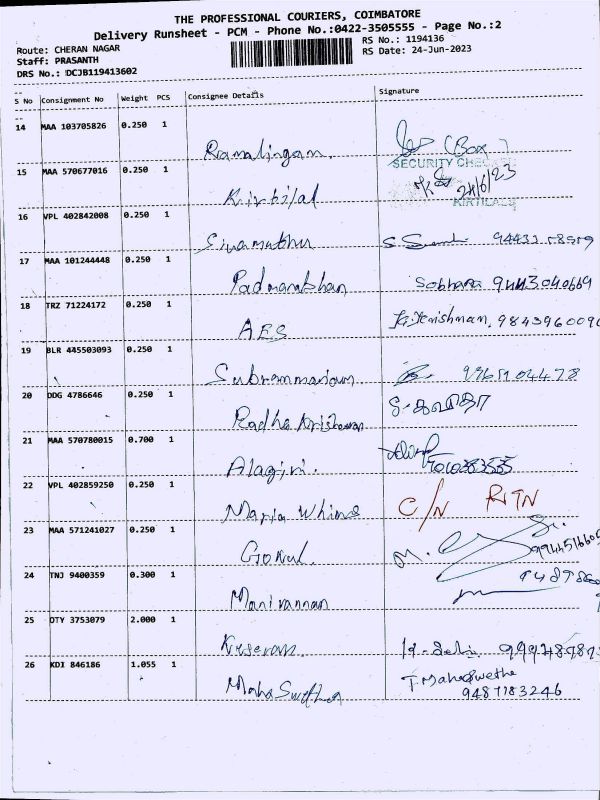 THE PROFESSIONAL COURIERS, COIMBATORE
Delivery Runsheet - PCM - Phone No.:0422-3505555 - Page No.:2
Route: CHERAN NAGAR
RS No.: 1194136
Staff: PRASANTH
RS Date: 24-Jun-2023
DRS No.: DCJB119413602
S No Consignment No Weight PCS Consignee Details Signature
14 MAA 103705826 0.250 1
Ramalingam. (Box)
SECURITY CHECKED
15 MAA 570677016 0.250 1
Kirtilal 24/6/23
KIRTILALS
16 VPL 402842008 0.250 1
Sivamuthu
17 MAA 101244448 0.250 1
Padmanabhan Sobhana 9443040669
18 TRZ 71224172 0.250 1
AES
19 BLR 445503093 0.250 1
Subrammaniam
20 DDG 4786646 0.250 1
Radha Krishnan
21 MAA 570780015 0.700 1
Alagiri.
22 VPL 402859250 0.250 1
Maria Whims C/N RTN
23 MAA 571241027 0.250 1
Gokul. M.
24 TNJ 9400359 0.300 1
Manivannan
25 OTY 3753079 2.000 1
26 KDI 846186 1.055 1
Maha Swetha T Maheswetha
9487183246